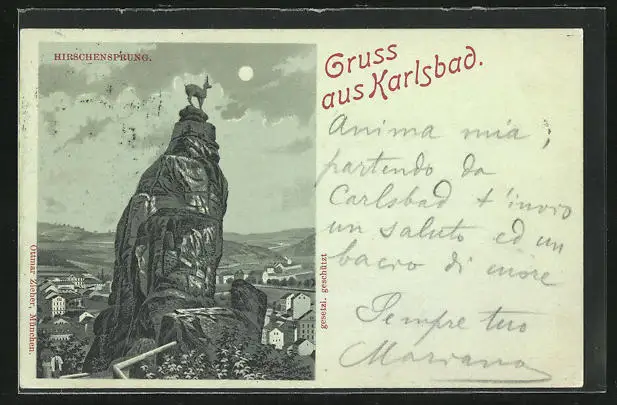 HIRSCHENSPRUNG.
Gruss
aus Karlsbad.
Anima mia,
partendo da
Carlsbad t'invio
un saluto ed un
bacio di cuore
Sempre tuo
Mariano
Ottmar Zieher, München.
gesetzl. geschützt